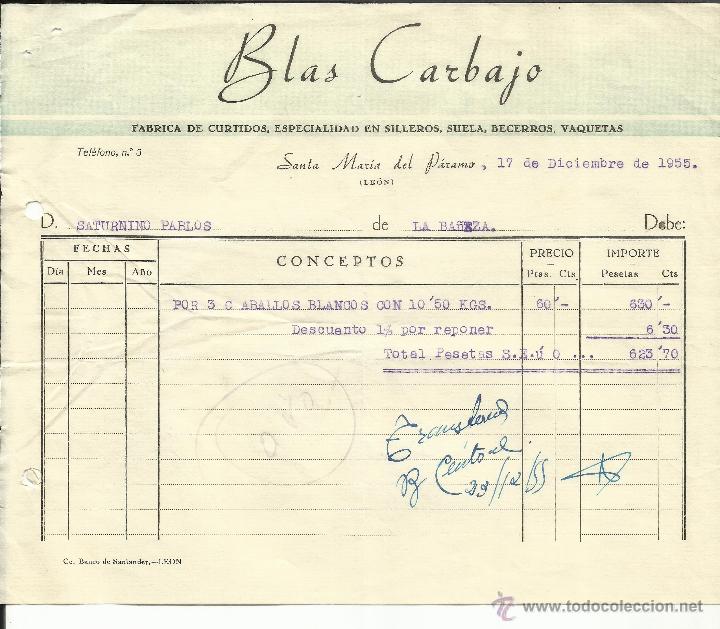 Blas Carbajo
FABRICA DE CURTIDOS, ESPECIALIDAD EN SILLEROS, SUELA, BECERROS, VAQUETAS
Teléfono, n.º 3
Santa María del Páramo, 17 de Diciembre de 1955.
(LEÓN)
D. SATURNINO PABLOS de LA BAÑEZA. Debe:
FECHAS CONCEPTOS PRECIO IMPORTE
Día Mes Año Ptas. Cts. Pesetas Cts
POR 3 C ABALLOS BLANCOS CON 10'50 KGS. 60'- 630'-
Descuento 1% por reponer 6'30
Total Pesetas S.E.ú O ... 623'70
23/12/55
Cc. Banco de Santander.—LEON
www.todocoleccion.net